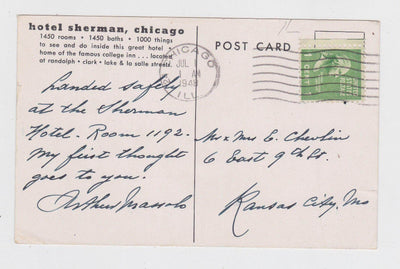 hotel sherman, chicago
1450 rooms • 1450 baths • 1000 things
to see and do inside this great hotel •
home of the famous college inn ... located
at randolph • clark • lake & la salle streets.
POST CARD
CHICAGO
JUL
AM
1948
ILL.
Landed safely
at the Sherman
Hotel. Room 1192.
My first thought
goes to you.
Arthur Massolo
Mr & Mrs E. Chevlin
6 East 9th St.
Kansas City, Mo